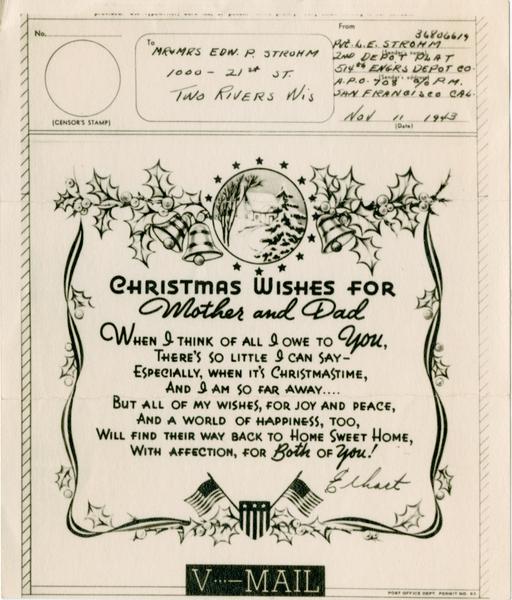 No.
(CENSOR'S STAMP)
To
MR & MRS EDW. P. STROHM
1000 - 21st ST.
TWO RIVERS WIS
From
36806619
PVT. L. E. STROHM
(Sender's name)
2ND DEPOT PLAT
514th ENGRS DEPOT CO.
(Sender's address)
A.P.O. 708 c/o P.M.
SAN FRANCISCO CAL.
NOV 11 1943
(Date)
CHRISTMAS WISHES FOR
Mother and Dad
WHEN I THINK OF ALL I OWE TO You,
THERE'S SO LITTLE I CAN SAY—
ESPECIALLY, WHEN IT'S CHRISTMASTIME,
AND I AM SO FAR AWAY....
BUT ALL OF MY WISHES, FOR JOY AND PEACE,
AND A WORLD OF HAPPINESS, TOO,
WILL FIND THEIR WAY BACK TO HOME SWEET HOME,
WITH AFFECTION, FOR Both OF You!
Elhart
V···—MAIL
POST OFFICE DEPT. PERMIT NO.